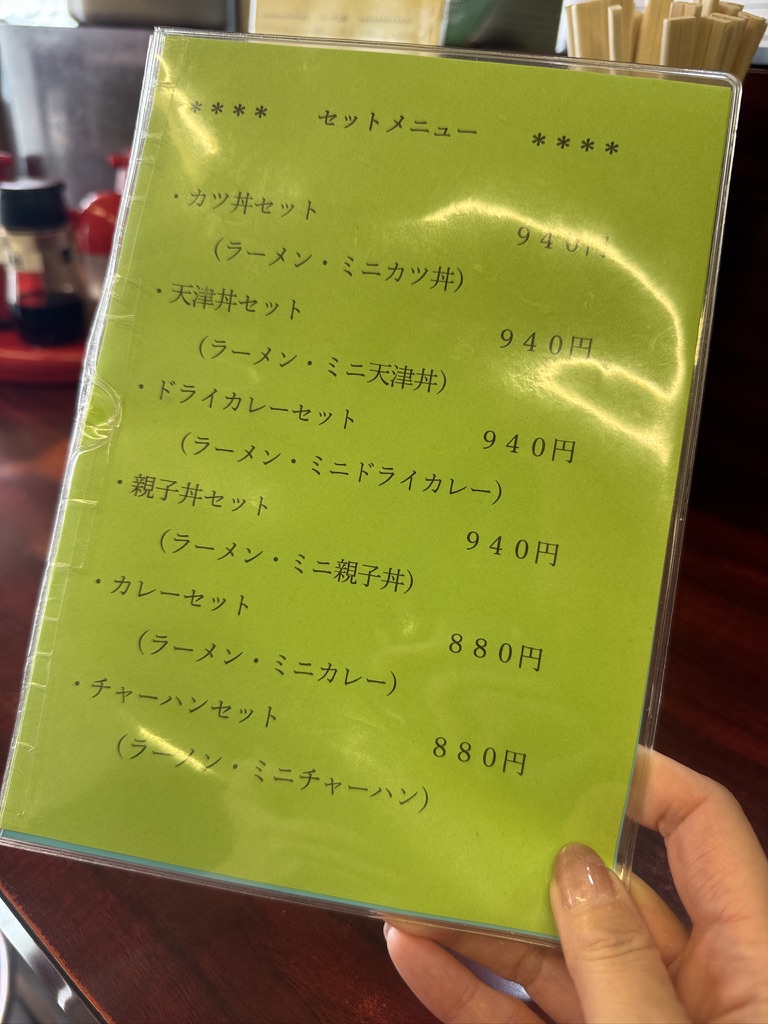 ＊＊＊＊　セットメニュー　＊＊＊＊
・カツ丼セット　９４０円
（ラーメン・ミニカツ丼）
・天津丼セット　９４０円
（ラーメン・ミニ天津丼）
・ドライカレーセット　９４０円
（ラーメン・ミニドライカレー）
・親子丼セット　９４０円
（ラーメン・ミニ親子丼）
・カレーセット　８８０円
（ラーメン・ミニカレー）
・チャーハンセット　８８０円
（ラーメン・ミニチャーハン）